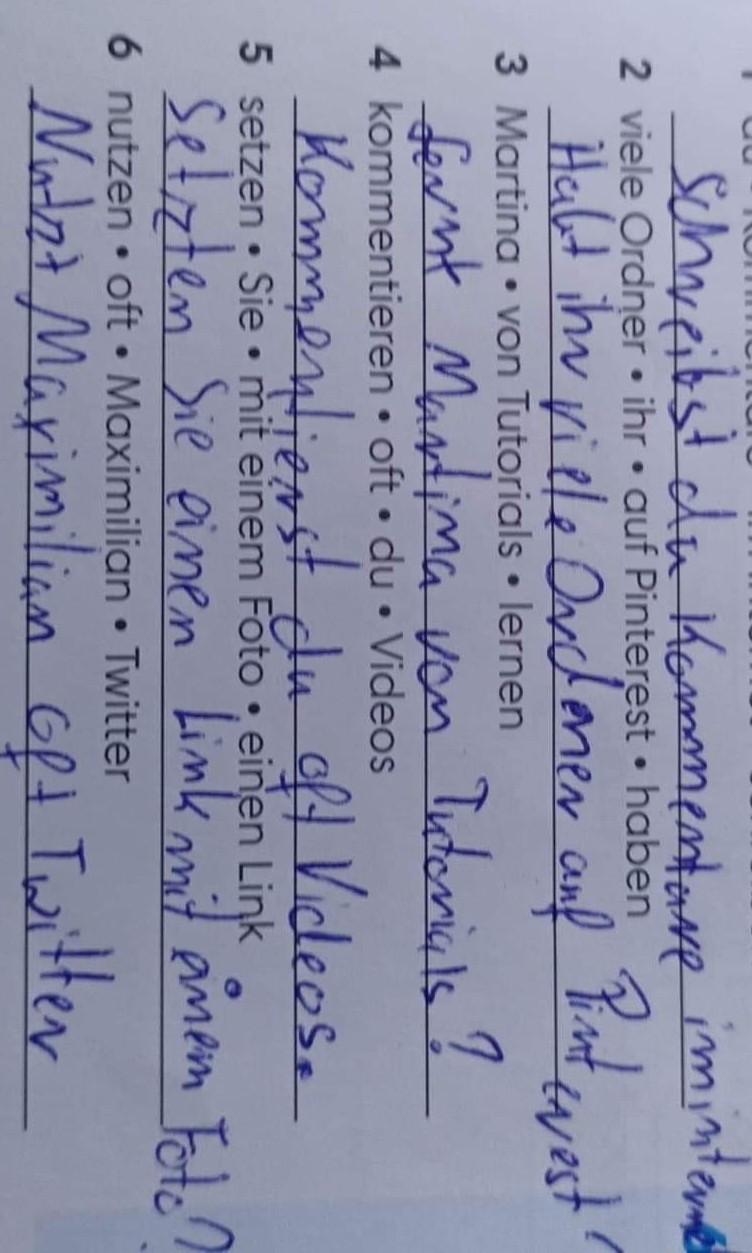 Schreibst du Kommentare im interne
2 viele Ordner • ihr • auf Pinterest • haben
Habt ihr viele Ordener auf Pinterest?
3 Martina • von Tutorials • lernen
lernt Martina von Tutorials?
4 kommentieren • oft • du • Videos
Kommentierst du oft Videos.
5 setzen • Sie • mit einem Foto • einen Link
Setzten Sie einen Link mit einem Foto?
6 nutzen • oft • Maximilian • Twitter
Nutzt Maximilian oft Twitter